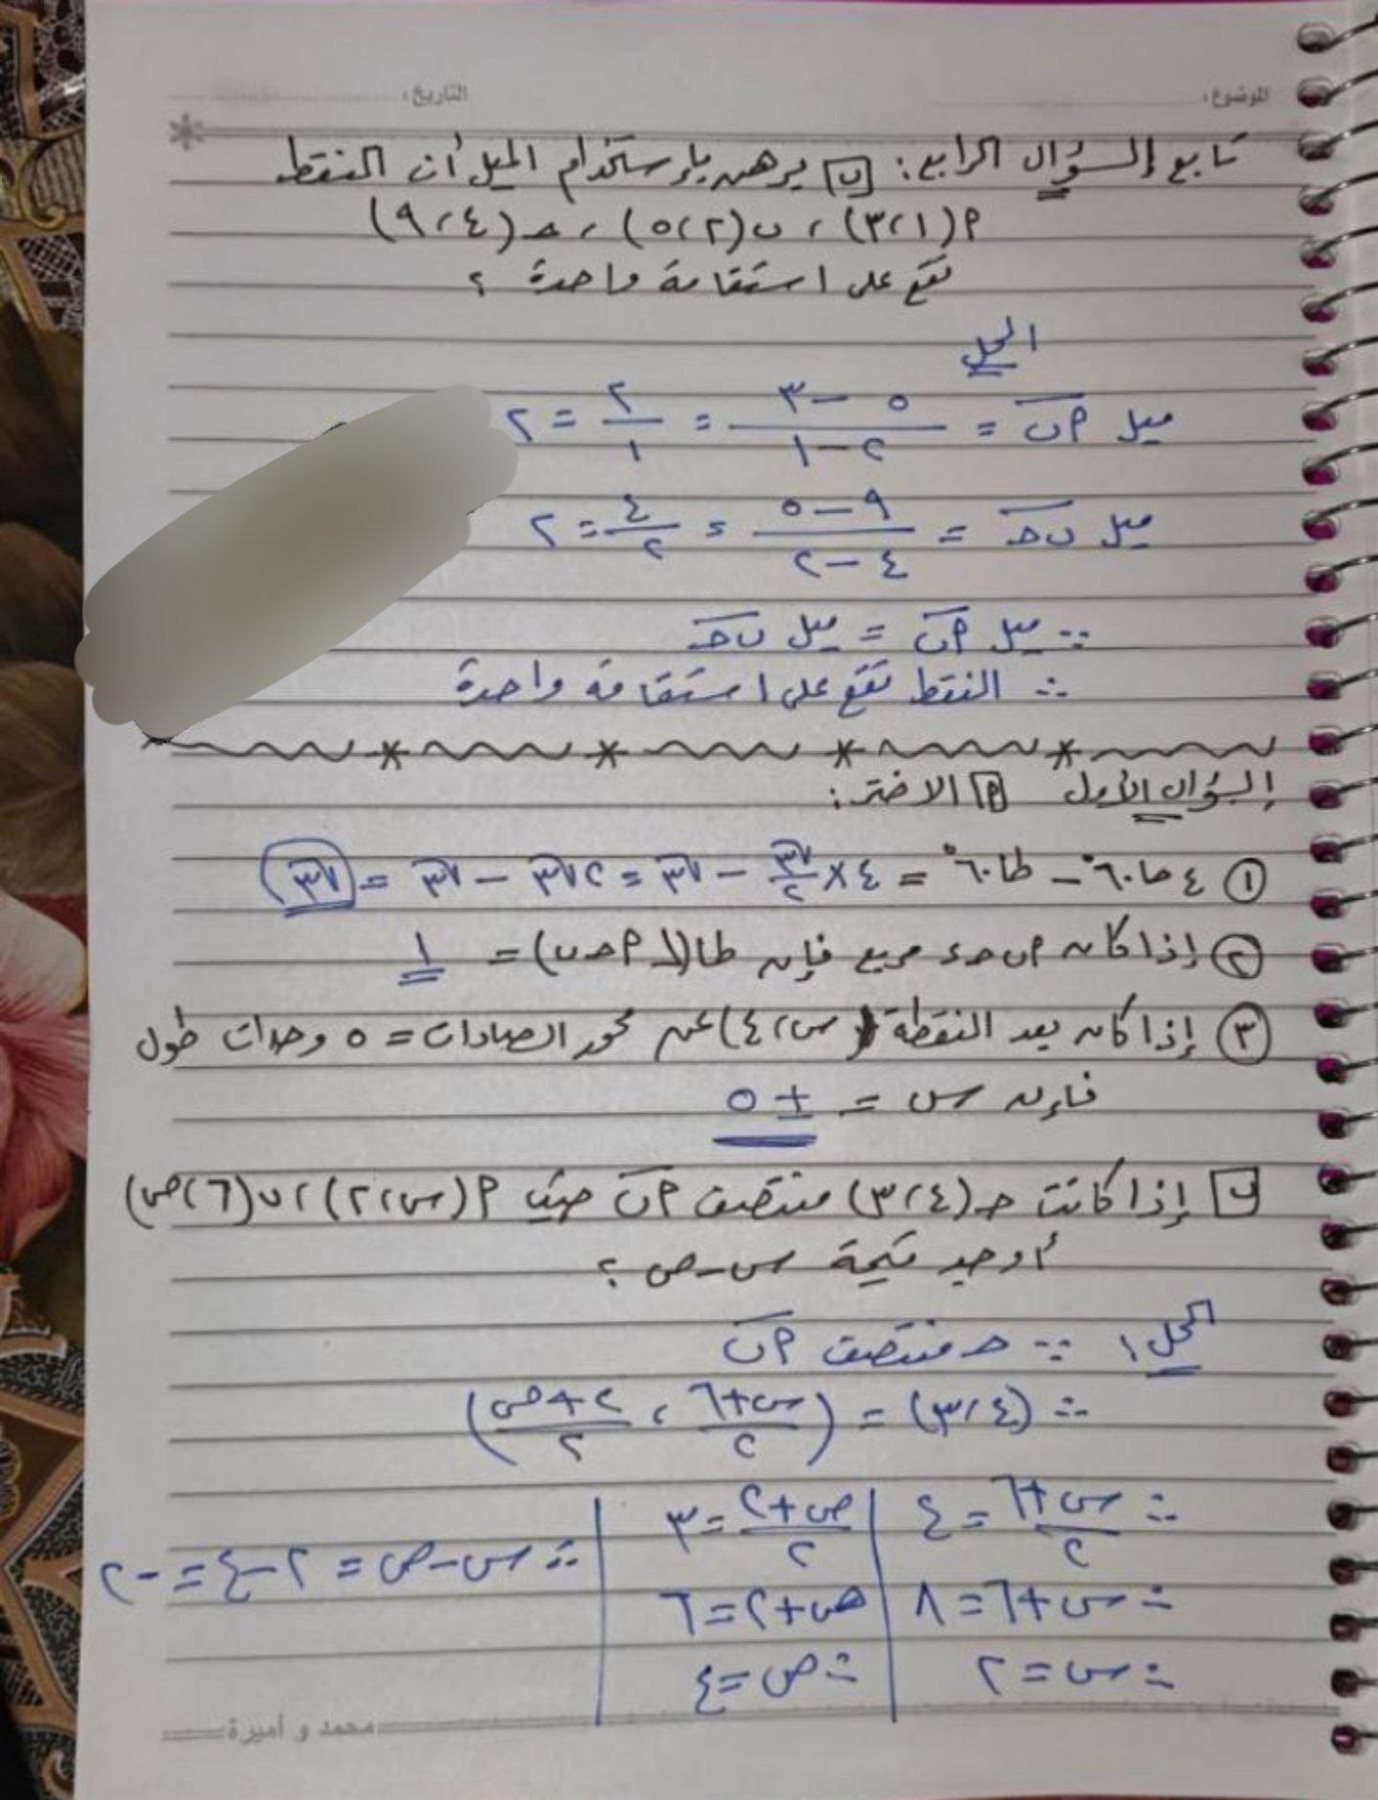 الموضوع: التاريخ:
تابع السؤال الرابع: [ب] برهن بإستخدام الميل أن النقط
أ(١،٣)، ب(٢،٥)، حـ(٤،٩)
تقع على استقامة واحدة ؟
الحل
ميل أب = (٥ - ٣)/(٢ - ١) = ٢/١ = ٢
ميل ب حـ = (٩ - ٥)/(٤ - ٢) = ٤/٢ = ٢
∵ ميل أب = ميل ب حـ
∴ النقط تقع على استقامة واحدة
السؤال الأول [أ] الاختر:
① ٤ حا ٦٠° - طا ٦٠° = ٤ × √٣/٢ - √٣ = ٢√٣ - √٣ = √٣
② إذا كان أ ب حـ ء مربع فإن طا(∠ أ حـ ب) = ١
③ إذا كان بعد النقطة (س، ٤) عن محور الصادات = ٥ وحدات طول
فإن س = ± ٥
[ب] إذا كانت حـ (٤،٣) منتصف أب حيث أ(س،٢)، ب(٦،ص)
أوجد قيمة س - ص ؟
الحل ∵ حـ منتصف أب
∴ (٤،٣) = ((س+٦)/٢ ، (٢+ص)/٢)
∴ (س+٦)/٢ = ٤ | (ص+٢)/٢ = ٣ | ∴ س - ص = ٢ - ٤ = -٢
∴ س+٦ = ٨ | ص+٢ = ٦
∴ س = ٢ | ∴ ص = ٤
محمد و أميرة